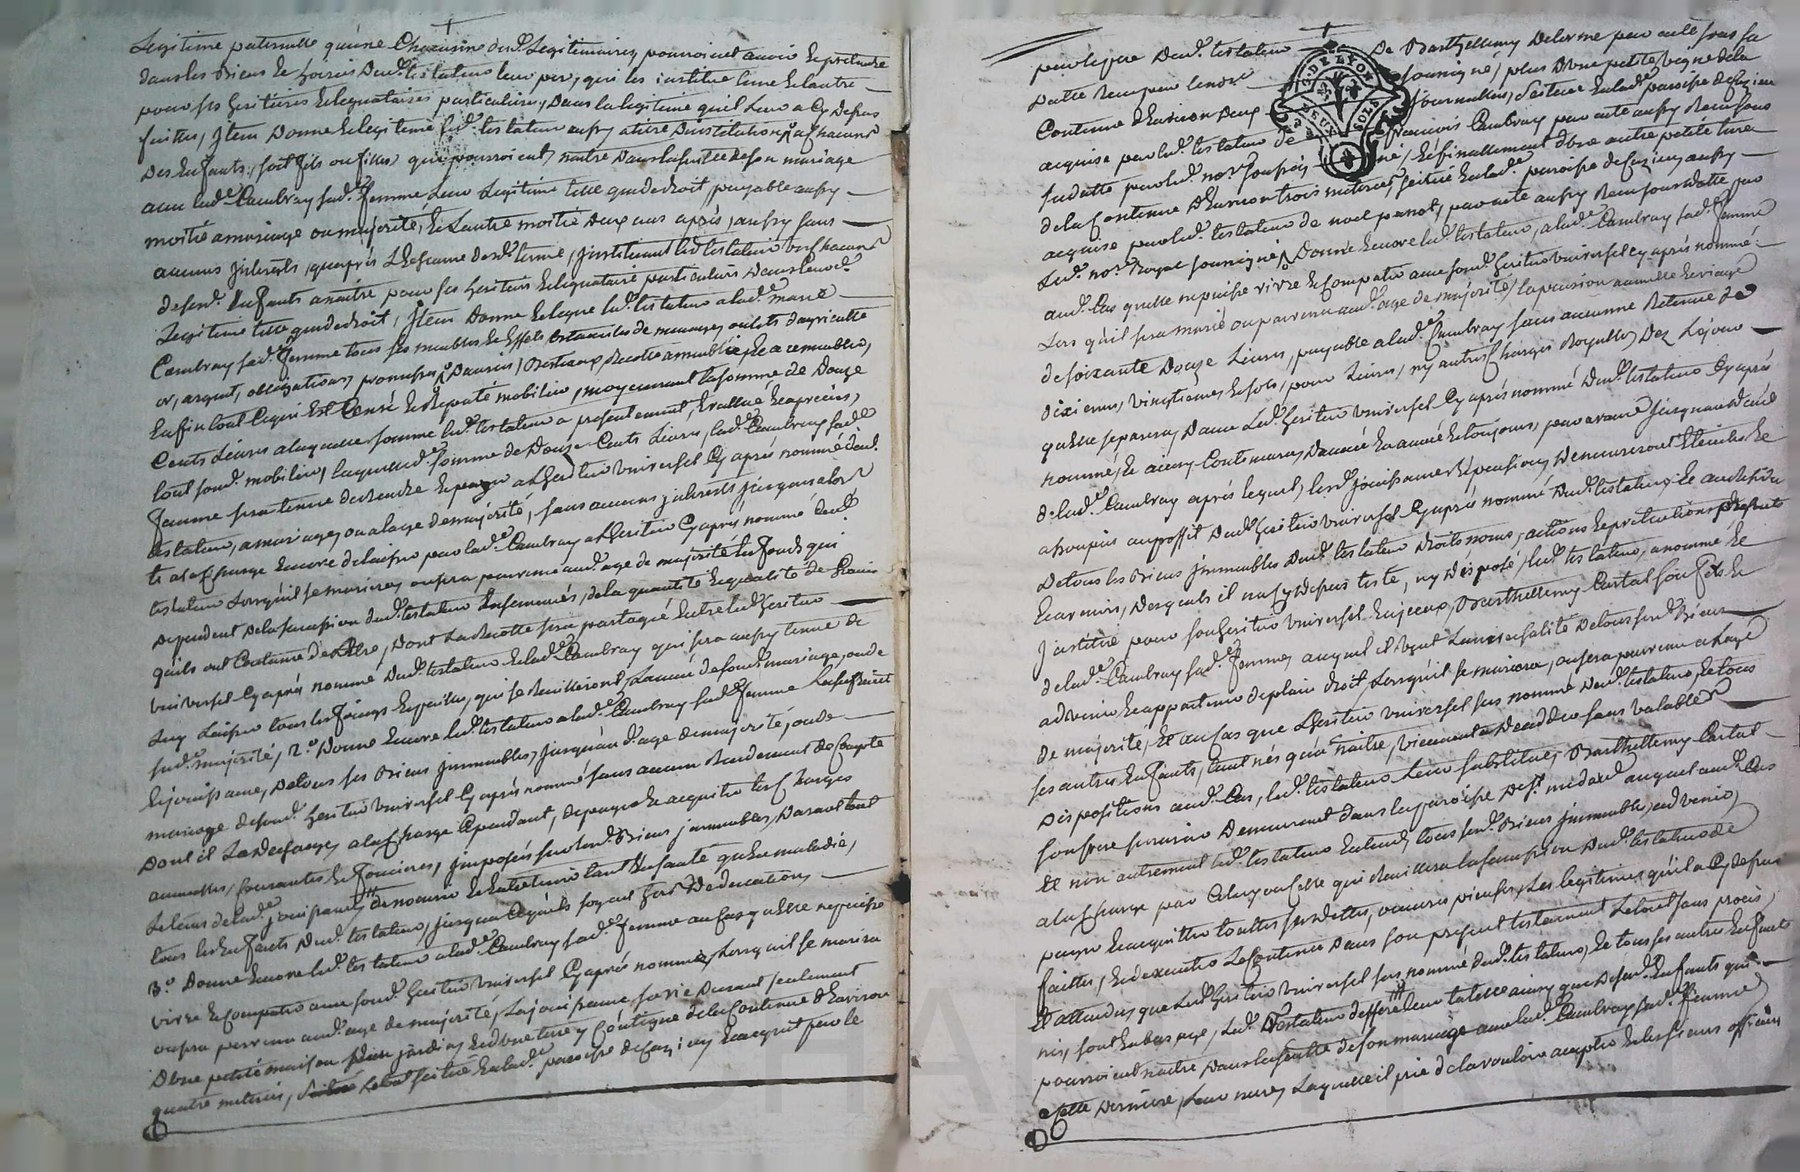 Legitime paternelle qu'une Chacune desd. Legitimaires pourroient avoir & pretendre
dans les Biens & hoirie dud. testateur leur pere, qui les institue l'une & l'autre
pour ses heritieres & legataires particulieres, dans la legitime qu'il leur a Cy depus
faittes, Item Donne & legue led. testateur aussy a titre d'institution a chacun
des Enfants, soit fils ou filles qui pourroient naitre dans la suitte de son mariage
avec lad. Cambray sad. femme Leur Legitime telle que de droit, payable aussy
moitié a mariage ou majorité, & L'autre moitié deux ans après, aussy sans
aucuns jnterests, qu'après L'Echeance desd. terme, jnstituant led. testateur un chacun
de sesd. Enfants a naitre pour ses heritiers & legataire particuliers dans leursd.
Legitime telle que de droit, Item Donne & legue led. testateur a lad. marie
Cambray sad. femme tous ses meubles & Effets Ustancilles de menage, outils d'agriculture
or, argent, obligations, promesses, Danrées, Bestiaux, Recolte ameublie & a remeublir,
Enfin tout Ce qui Est Censé & reputé mobilier, moyennant la somme de Douze
Cents Livres a laquelle somme led. testateur a presentement Evallué & apreciés,
tout sond. mobilier, laquelle d. somme de Douze Cents Livres, lad. Cambray sad.
femme sera tenue de rendre & payer a L'heritier Universel Cy après nommé dud.
testateur, a mariage, ou a l'age de majorité, sans aucuns jnterests jusques alors
& a la Charge Encore de laisser par lad. Cambray a L'heritier Cy après nommé dud.
testateur Lorsqu'il se mariera, ou sera parvenu aud. age de majorité les fonds qui
Dependent de la succession dud. testateur Ensemencés, de la quantité & qualité de Grains
qu'ils ont Coutume de L'Etre, dont La Recolte sera partagé Entre led. heritier
universel Cy après nommé dud. testateur & lad. Cambray qui sera aussy tenue de
Luy Laisser tous les foings & pailles, qui se Recuilleront, L'année de sond. mariage, ou de
sad. majorité, 2.° Donne Encore led. testateur a lad. Cambray sad. femme
& jouissance, de tous ses Biens jmmeubles, jusqu'au d. age de majorité, ou de
mariage de sond. heritier Universel Cy après nommé sans aucun Rendement de Compte
dont il La decharge, a la Charge Cependant, de payer & acquitter les Charges
annuelles, Courantes & foncieres, jmposés sur lesd. Biens jmmeubles, Durant tout
Le tems de lad. jouissance, & de nourrir & Entretenir tant En santé qu'En maladie,
tous les Enfants dud. testateur, jusqu'a Ce qu'ils soyent hors d'Education,
3.° Donne Encore led. testateur a lad. Cambray sad. femme au Cas qu'Elle ne puisse
vivre & Compatir avec sond. heritier universel Cy après nommé, Lorsqu'il se mariera
ou sera parvenu aud. age de majorité, La jouissance, sa vie Durant seulement
D'une petite maison, jardin, & d'une terre y Contigue de la Contenue d'Environ
quatre meterées, Le tout scitué En lad. paroisse de Cuzieu, & acquit par le
pere le pere dud. testateur
De Barthellemy Delorme par acte sous sa
Datte Receu par le no.re
soussigné, plus d'une petite vigne de la
Contenue d'Environ Deux
journallées, scituée En lad. paroisse de Cuzieu
acquise par led. testateur de
françois Cambray par acte aussy Receu sous
sa datte par led. no.re soussi
gné, & finallement d'une autre petite terre
de la Contenue d'Environ trois meterées, scitué En lad. paroisse de Cuzieu, aussy
acquise par led. testateur de noel panot, par acte aussy Receu sous sa datte par
led. no.re Royal soussigné, Donne Encore led. testateur, a lad. Cambray sad. femme
aud. Cas qu'elle ne puisse vivre & Compatir avec sond. heritier universel Cy après nommé
Lors qu'il sera marié ou parvenu aud. age de majorité, la pension annuelle & viagere
de soixante Douze Livres, payable a lad. Cambray sans aucunne Retenue de
dixiemes, vingtiemes, & sols, pour Livres, ny autres Charges Royalles, Dez Le jour
qu'elle se separera, D'avec Led. heritier Universel Cy après nommé dud. testateur Cy après
nommé, & ainsy Continuera, D'année En année & toujours, par avance jusqu'au deced
de lad. Cambray après lequel, lesd. jouissance & pensions Demeureront Eteintes &
assoupies au proffit dud. heritier Universel Cy après nommé dud. testateur, & au residu
De tous les Biens jmmeubles dud. testateur droits noms, actions & pretentions presents
& avenir, desquels il n'a Cy depus testé, ny disposé, led. testateur, a nommé &
jnstitué pour son heritier Universel & seul, Barthellemy Cartal son fils &
de lad. Cambray sad. femme, auquel il veut L'universalité de tous sesd. Biens
advenir & appartenir de plain droit, Lorsqu'il se mariera, ou sera parvenu a L'age
de majorité, & au Cas que L'heritier universel sus nommé dud. testateur, & tous
ses autres Enfants, tant nés qu'a naitre, Viennent a Deceder sans valables
Dispositions aud. Cas, led. testateur Leur substitue, Barthellemy Cartal
son frere Demeurant dans la paroisse de St. medard auquel aud. Cas
Et non autrement led. testateur Entend, tous sesd. Biens jmmeubles advenir,
a la Charge par Celuy ou Celle qui Recuillera la succession dud. testateur de
payer & acquitter touttes ses dettes, oeuvres pieuses, Les legitimes qu'il a Cy depus
faittes, & d'executer Le Contenu dans son present testament Le tout sans procès,
Et attendu que Led. heritier Universel sus nommé dud. testateur, & tous ses autres Enfants
nés, sont En bas age, Led. Testateur deffere leur tutelle ainsy que de sesd. Enfants qui
pourroient naitre, Dans la suitte de son mariage avec lad. Cambray sad. femme,
a Cette Derniere, Leur mere, Laquelle il prie de la vouloir accepter & les sieurs officiers
G. DE LYON
DEUX SOLS